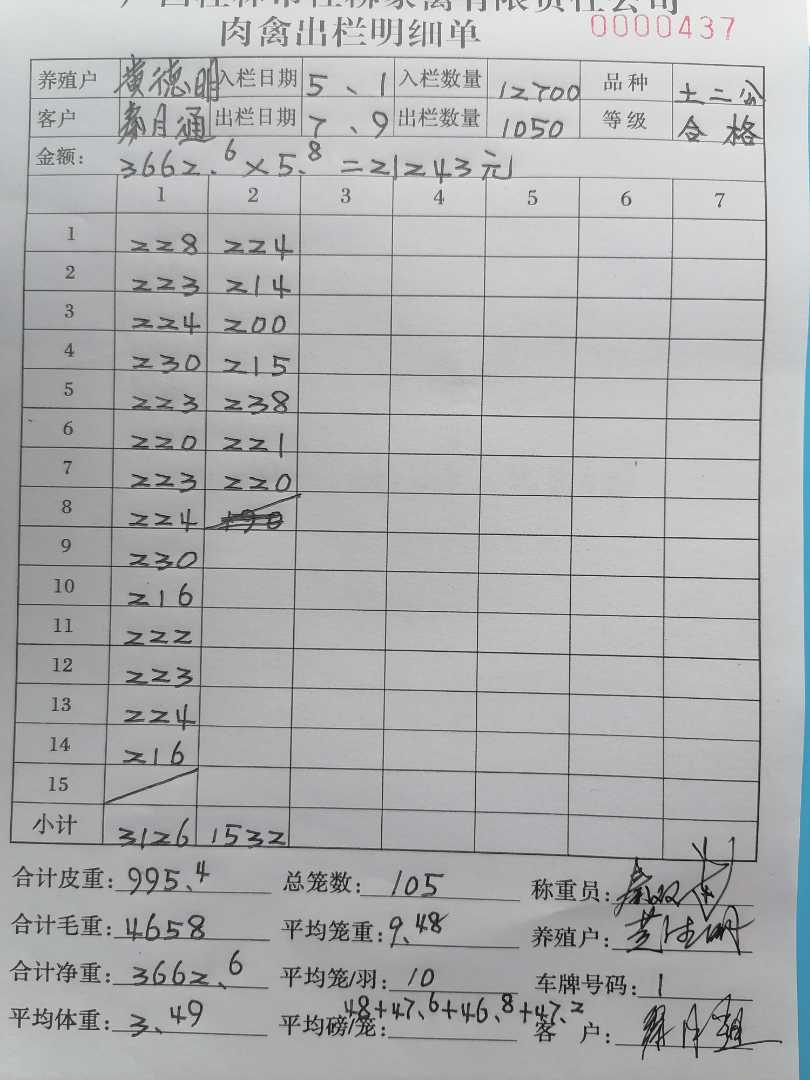 广西桂林市桂柳家禽有限责任公司
肉禽出栏明细单 0000437
养殖户 黄德明 入栏日期 5、1 入栏数量 12700 品种 土二公
客户 秦月通 出栏日期 7、9 出栏数量 1050 等级 合格
金额: 3662.6×5.8=21243元
1 2 3 4 5 6 7
1 228 224
2 223 214
3 224 200
4 230 215
5 223 238
6 220 221
7 223 220
8 224
9 230
10 216
11 222
12 223
13 224
14 216
15
小计 3126 1532
合计皮重: 995.4 总笼数: 105 称重员:
合计毛重: 4658 平均笼重: 9.48 养殖户:
合计净重: 3662.6 平均笼/羽: 10 车牌号码: 1
平均体重: 3.49 平均磅/笼: 48+47.6+46.8+47.2 客 户: